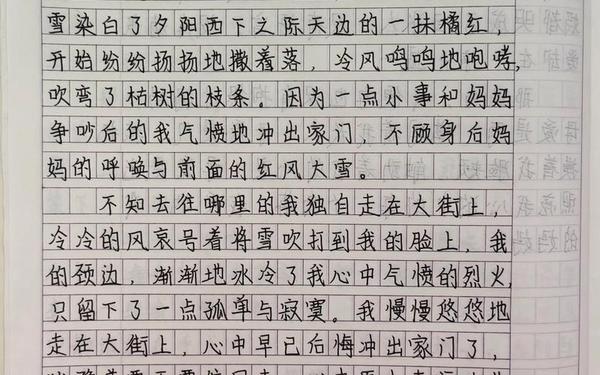 雪染白了夕阳西下之际天边的一抹橘红，
开始纷纷扬扬地撒着落，冷风呜呜地咆哮，
吹弯了枯树的枝条。因为一点小事和妈妈
争吵后的我气愤地冲出家门，不顾身后妈
妈的呼唤与前面的红风大雪。
不知去往哪里的我独自走在大街上，
冷冷的风哀号着将雪吹打到我的脸上，我
的颈边，渐渐地冰冷了我心中气愤的烈火，
只留下了一点孤单与寂寞。我慢慢悠悠地
走在大街上，心中早已后悔冲出家门了，